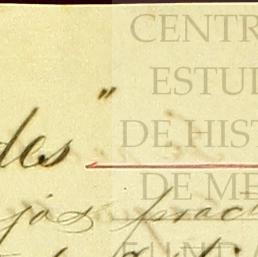 CENTR
ESTUI
des"
DE HIST
DE ME
jos pract
FUNDA